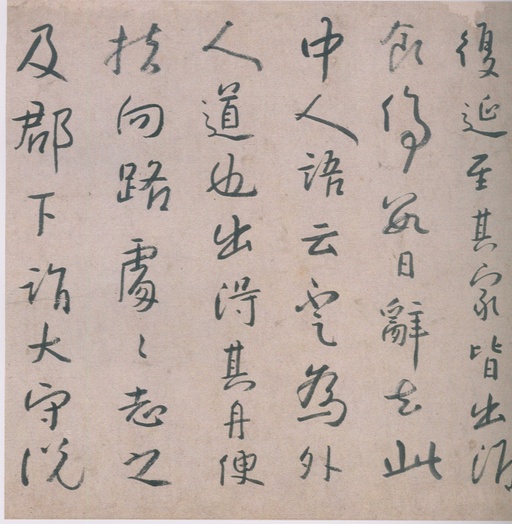 復延至其家皆出酒
食停數日辭去此
中人語云不足為外
人道也出得其舟便
扶向路處々志之
及郡下詣大守說